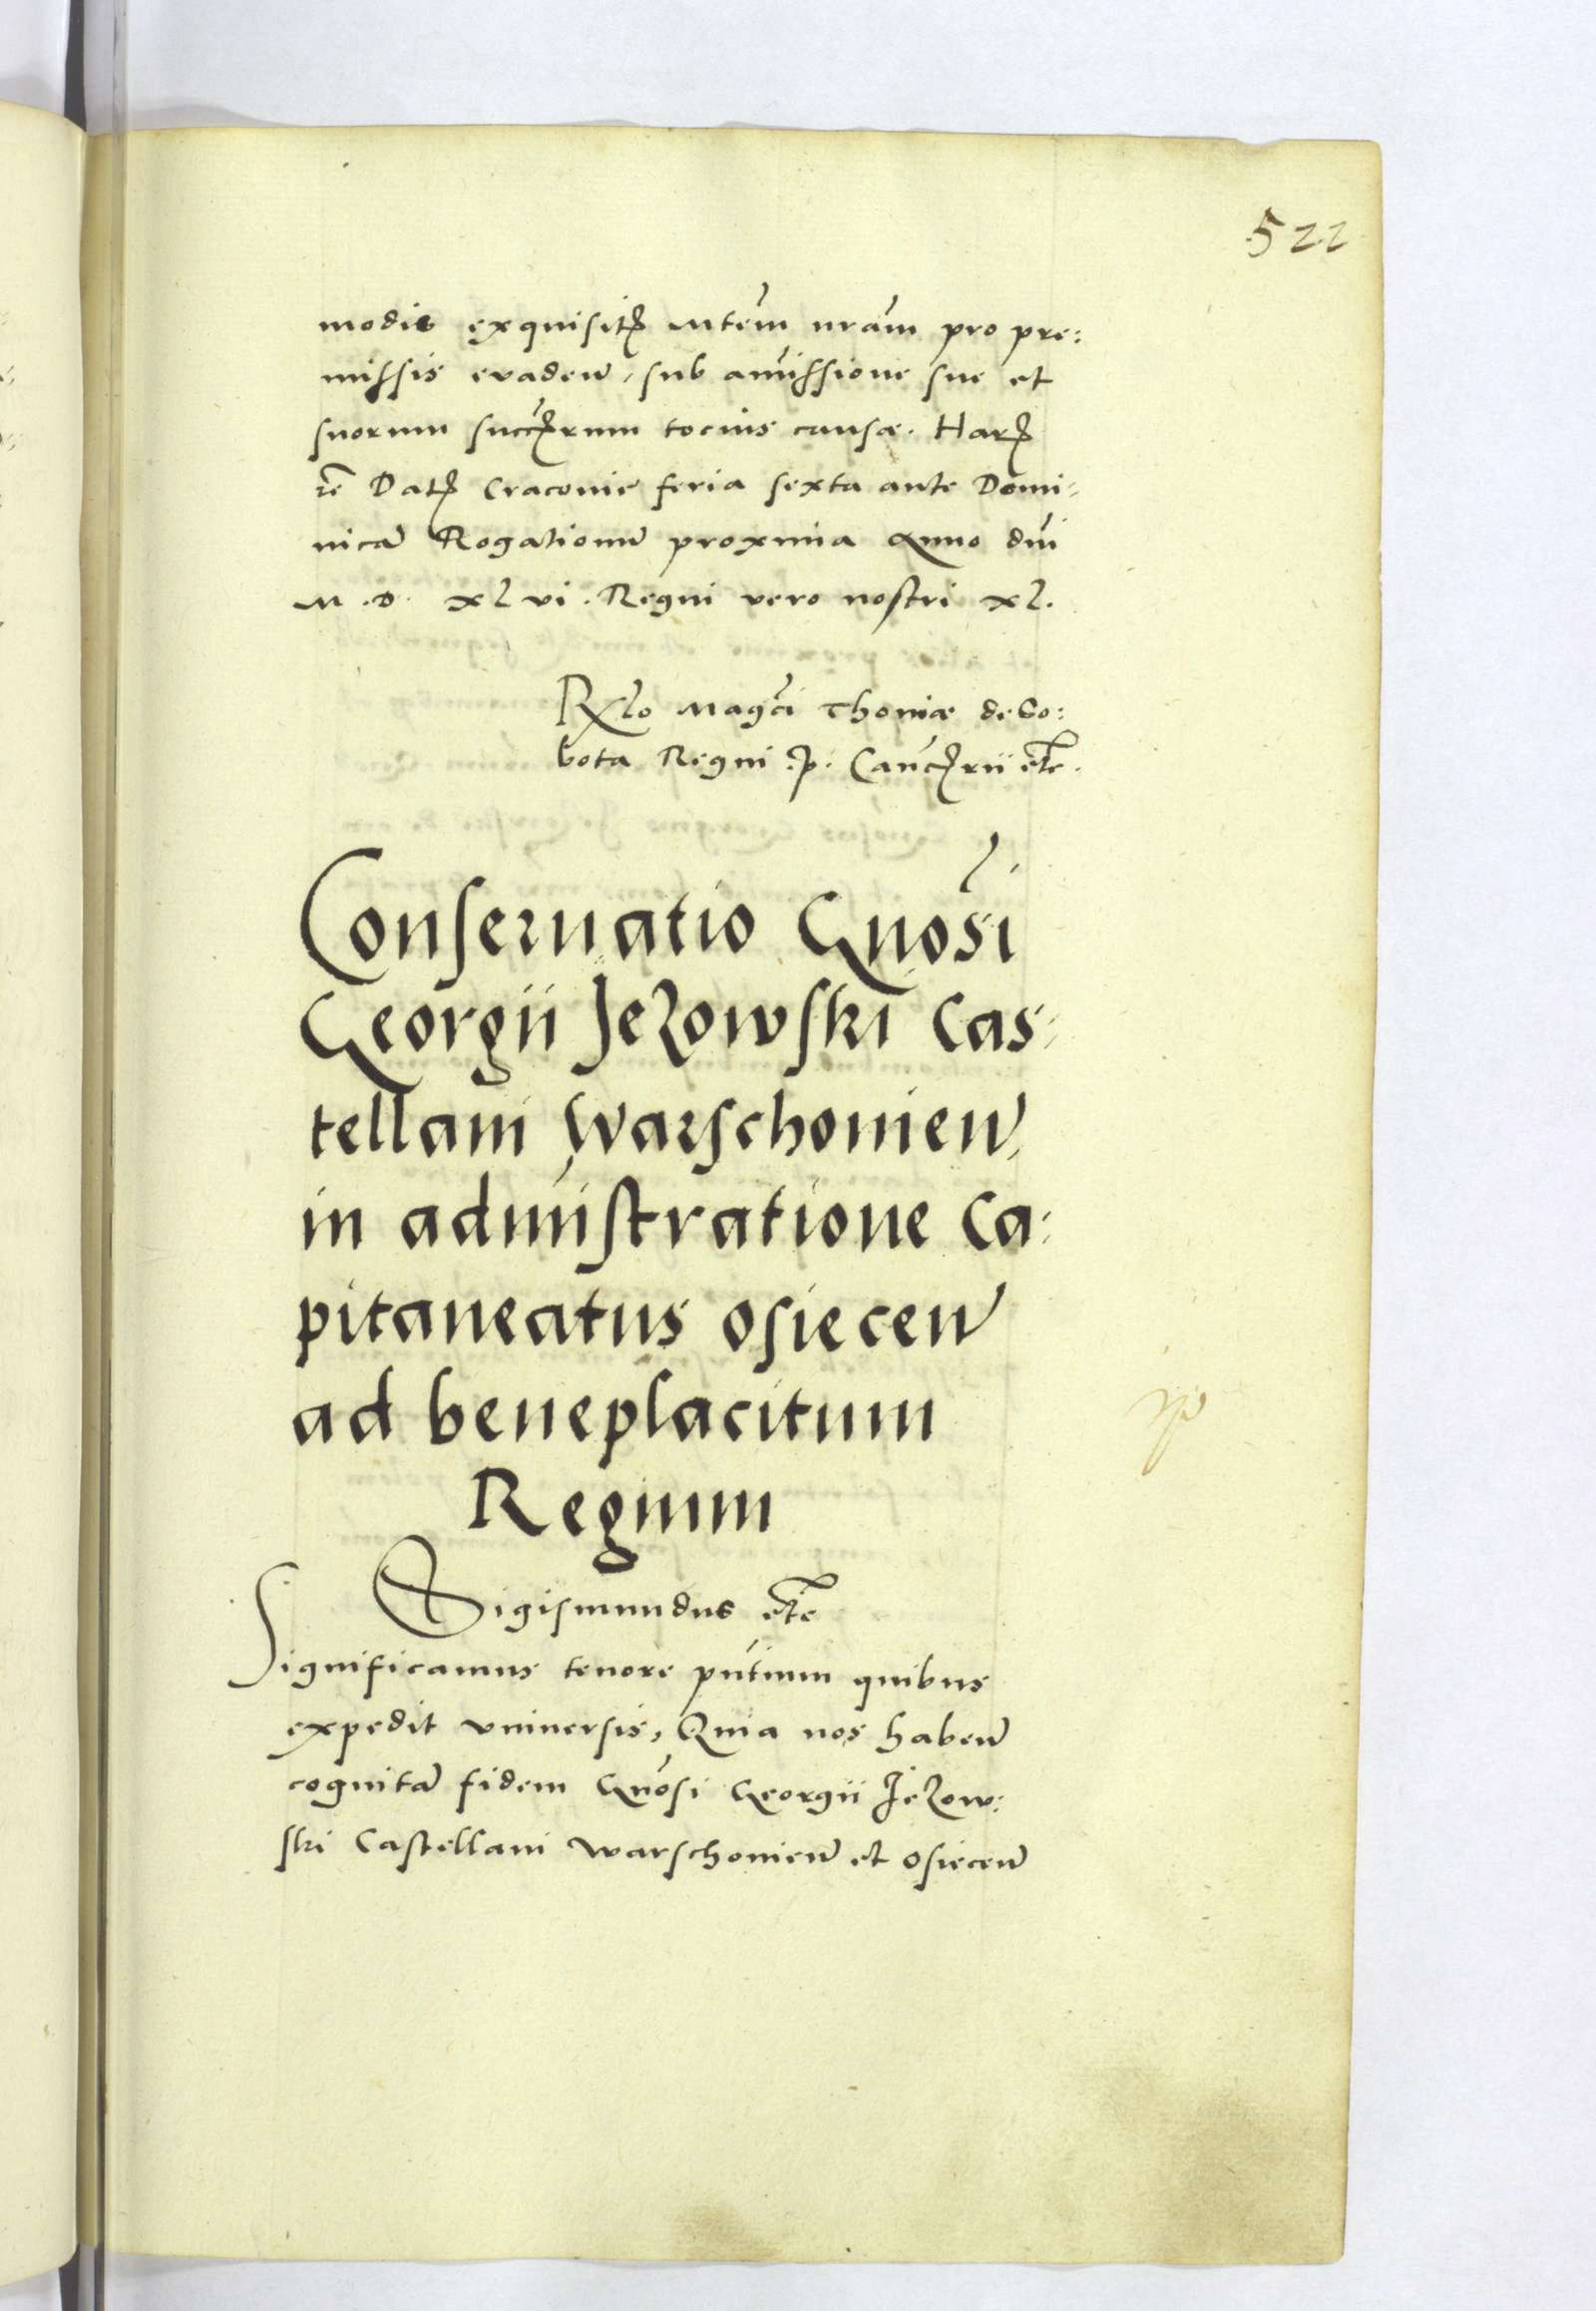 522
modis exquisitꝭ Mtem nram pro pre:
missis evaden, sub amissione sue et
suorum succꝭrum tocius causæ. Harꝭ
re Datꝭ Cracovie feria sexta ante Domi-
nica Rogationu proxima Anno dni
M.D. XLvi. Regni vero nostri xl.
Rlo Magci Thomæ de So:
bota Regni .p. Cancꝭrii etc.
Conservatio Gnosi
Georgii Jezowski Cas-
tellani Warschovien,
in admistratione Ca:
pitaneatus Osiecen
ad beneplacitum
Regium
Sigismundus etc
Significamus tenore pntium quibus
expedit universis, Quia nos haben
cognita fidem Gnosi Georgii Jezow:
ski Castellani Warschovien et Osiecen